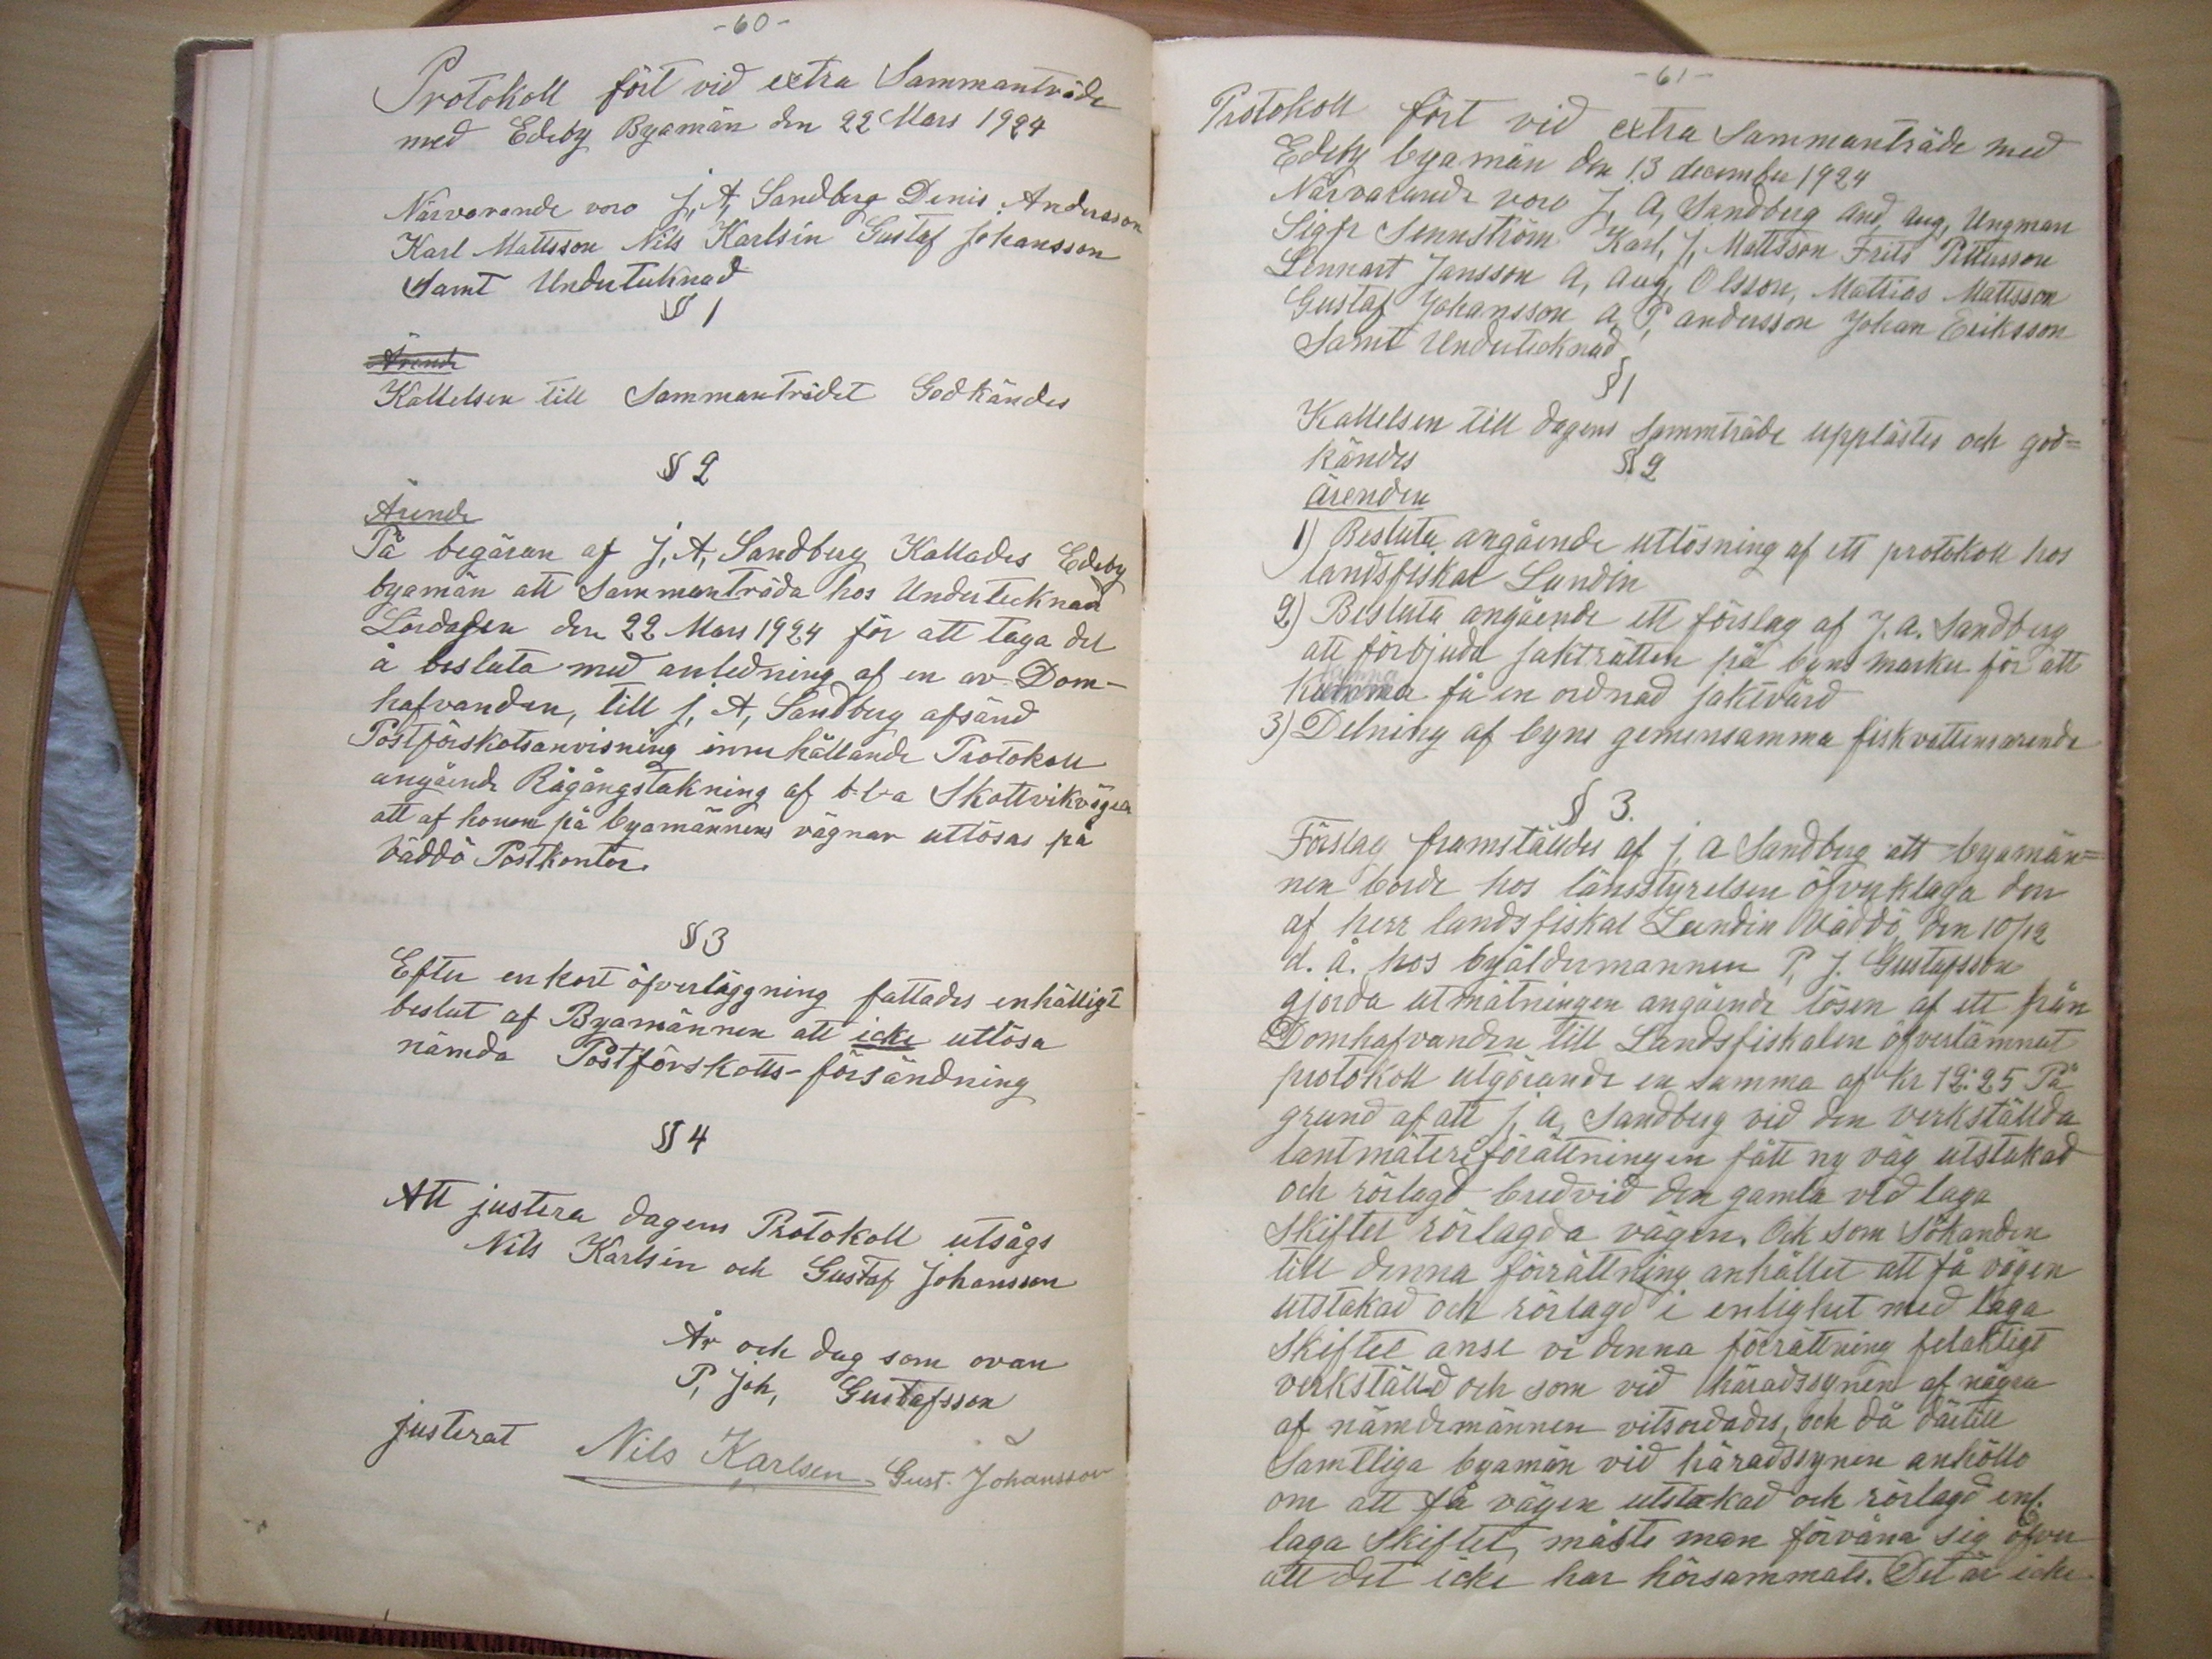 -60-
Protokoll fört vid extra Sammanträde
med Edeby Byamän den 22 Mars 1924
Närvarande voro J, A, Sandberg Denis Andersson
Karl Mattsson Nils Karlsin Gustaf Johansson
Samt Undertecknad
§ 1
Ärende
Kallelsen till Sammanträdet Godkändes
§ 2
Ärende
På begäran af J, A, Sandberg Kallades Edeby
byamän att Sammanträda hos Undertecknad
Lördagen den 22 Mars 1924 för att taga del
å besluta med anledning af en av Dom-
hafvanden, till j, A, Sandberg afsänd
Postförskotsanvisning innehållande Protokoll
angående Rågångstakning af b-l-a Skottvikvägen
att af honom på byamännens vägnar utlösas på
Väddö Postkontor.
§ 3
Efter en kort öfverläggning fattades enhälligt
beslut af Byamännen att icke utlösa
nämda Postförskotts-försändning
§ 4
Att justera dagens Protokoll utsågs
Nils Karlsin och Gustaf Johansson
År och dag som ovan
P, Joh, Gustafsson
justerat Nils Karlsen Gust. Johansson
-61-
Protokoll fört vid extra Sammanträde med
Edeby byamän den 13 december 1924
Närvarande voro J, A, Sandberg And, Aug, Ungman
Sigfr Sennström Karl, J, Mattsson Frits Pettersson
Lennart Jansson A, Aug, Olsson, Mattias Mattsson
Gustaf Johansson A, P, andersson Johan Eriksson
Samt Undertecknad
§ 1
Kallelsen till dagens Sammträde upplästes och god=
kändes
§ 2
Ärenden
1) Besluta angående utlösning af ett protokoll hos
landsfiskal Lundin
2) Besluta angående ett förslag af J. A. Sandberg
att förbjuda jakträtten på byns marker för att
kunna få en ordnad jaktvård
3) Delning af byns gemensamma fiskvattensarende
§ 3.
Förslag framställdes af j, a Sandberg att byamän=
nen borde hos länsstyrelsen öfverklaga den
af herr landsfiskal Lundin Väddö, den 10/12
d. å. hos byåldermannen P, J. Gustafsson
gjorda utmätningen angående lösen af ett från
Domhafvanden till Landsfiskalen öfverlämnat
protokoll utgörande en summa af kr 12:25 På
grund af att j, a, Sandberg vid den verkställda
lantmäteriförättningen fått ny väg utstakad
och rörlagd bredvid den gamla vid laga
Skiftet rörlagda vägen. Och som Sökanden
till denna förrättning anhållet att få vägen
utstakad och rörlagd i enlighet med laga
Skiftet anse vi denna förrättning felaktigt
verkställd och som vid häradssynen af några
af nämdemännen vitsordades, och då därtill
Samtliga byamän vid häradssynen anhöllo
om att få vägen utstakad och rörlagd enl.
laga Skiftet, måste man förvåna sig öfver
att det icke har hörsammats. Det är icke